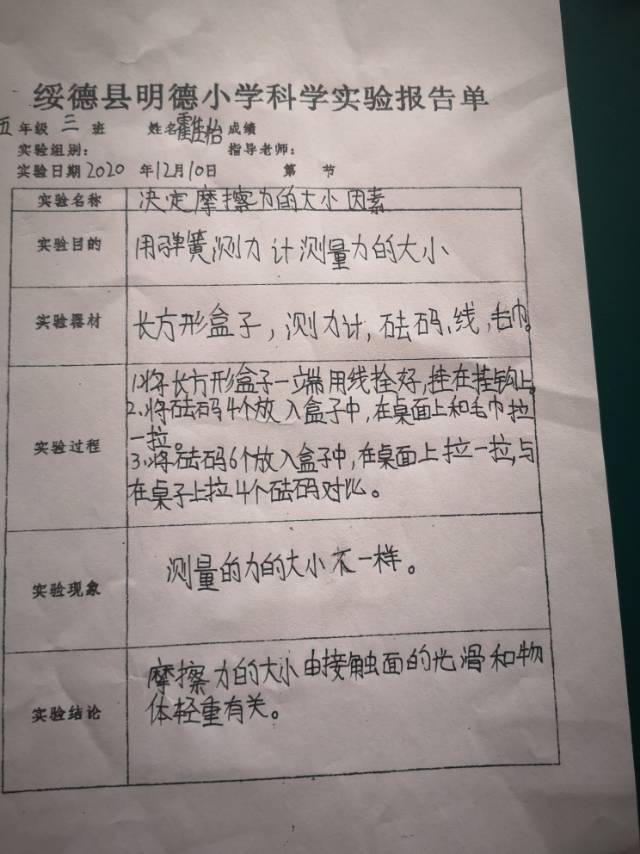 绥德县明德小学科学实验报告单
五年级三班 姓名霍佳怡成绩
实验组别： 指导老师：
实验日期2020年12月10日 第 节
实验名称 决定摩擦力的大小因素
实验目的 用弹簧测力计测量力的大小
实验器材 长方形盒子，测力计，砝码、线，毛巾。
实验过程 1、将长方形盒子一端用线拴好，挂在挂钩上。
2、将砝码4个放入盒子中，在桌面上和毛巾拉
一拉。
3、将砝码6个放入盒子中，在桌面上拉一拉，与
在桌子上拉4个砝码对比。
实验现象 测量的力的大小不一样。
实验结论 摩擦力的大小由接触面的光滑和物
体轻重有关。